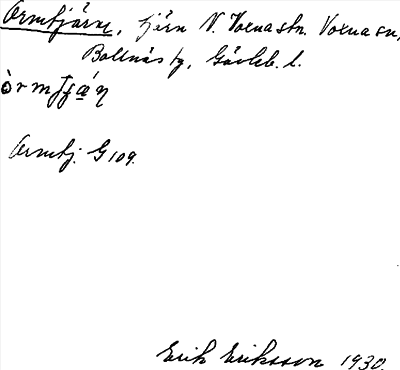 Ormtjärn, tjärn N. Voxna stn. Voxna sn,
Bollnäs tg, Gävleb. l.
Ormtj. G 109.
Erik Eriksson 1930.